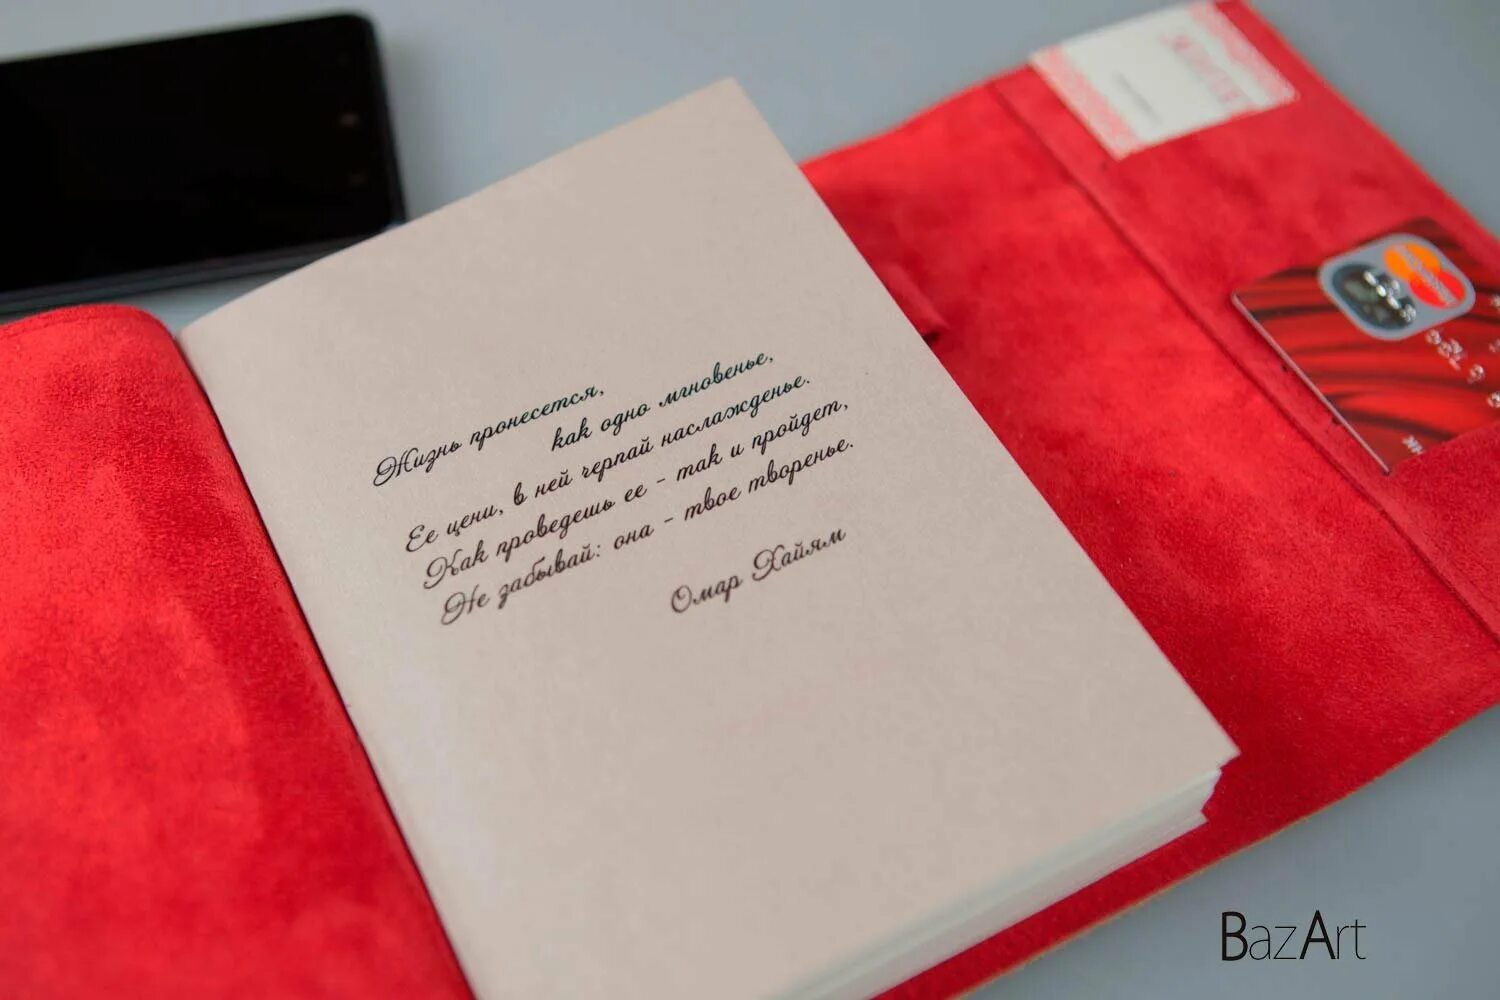 Жизнь пронесется,
как одно мгновенье,
Ее цени, в ней черпай наслажденье.
Как проведешь ее - так и пройдет,
Не забывай: она - твое творенье.
Омар Хайям
BazArt